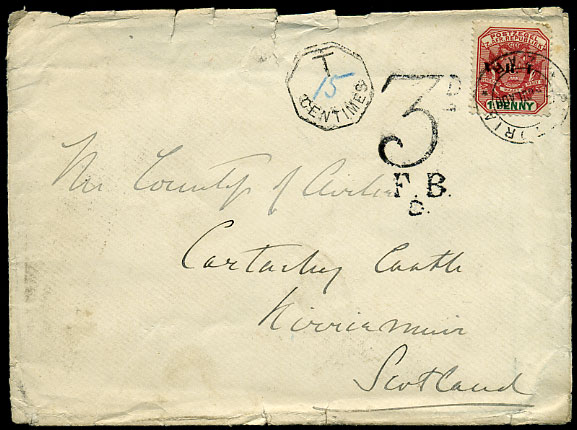 T
15
CENTIMES
3D.
F.B.
C.
POSTZEGEL
Z. AFR. REPUBLIEK
V.R.I.
1 PENNY
The Countess of Airlie
Cortachy Castle
Kirriemuir
Scotland